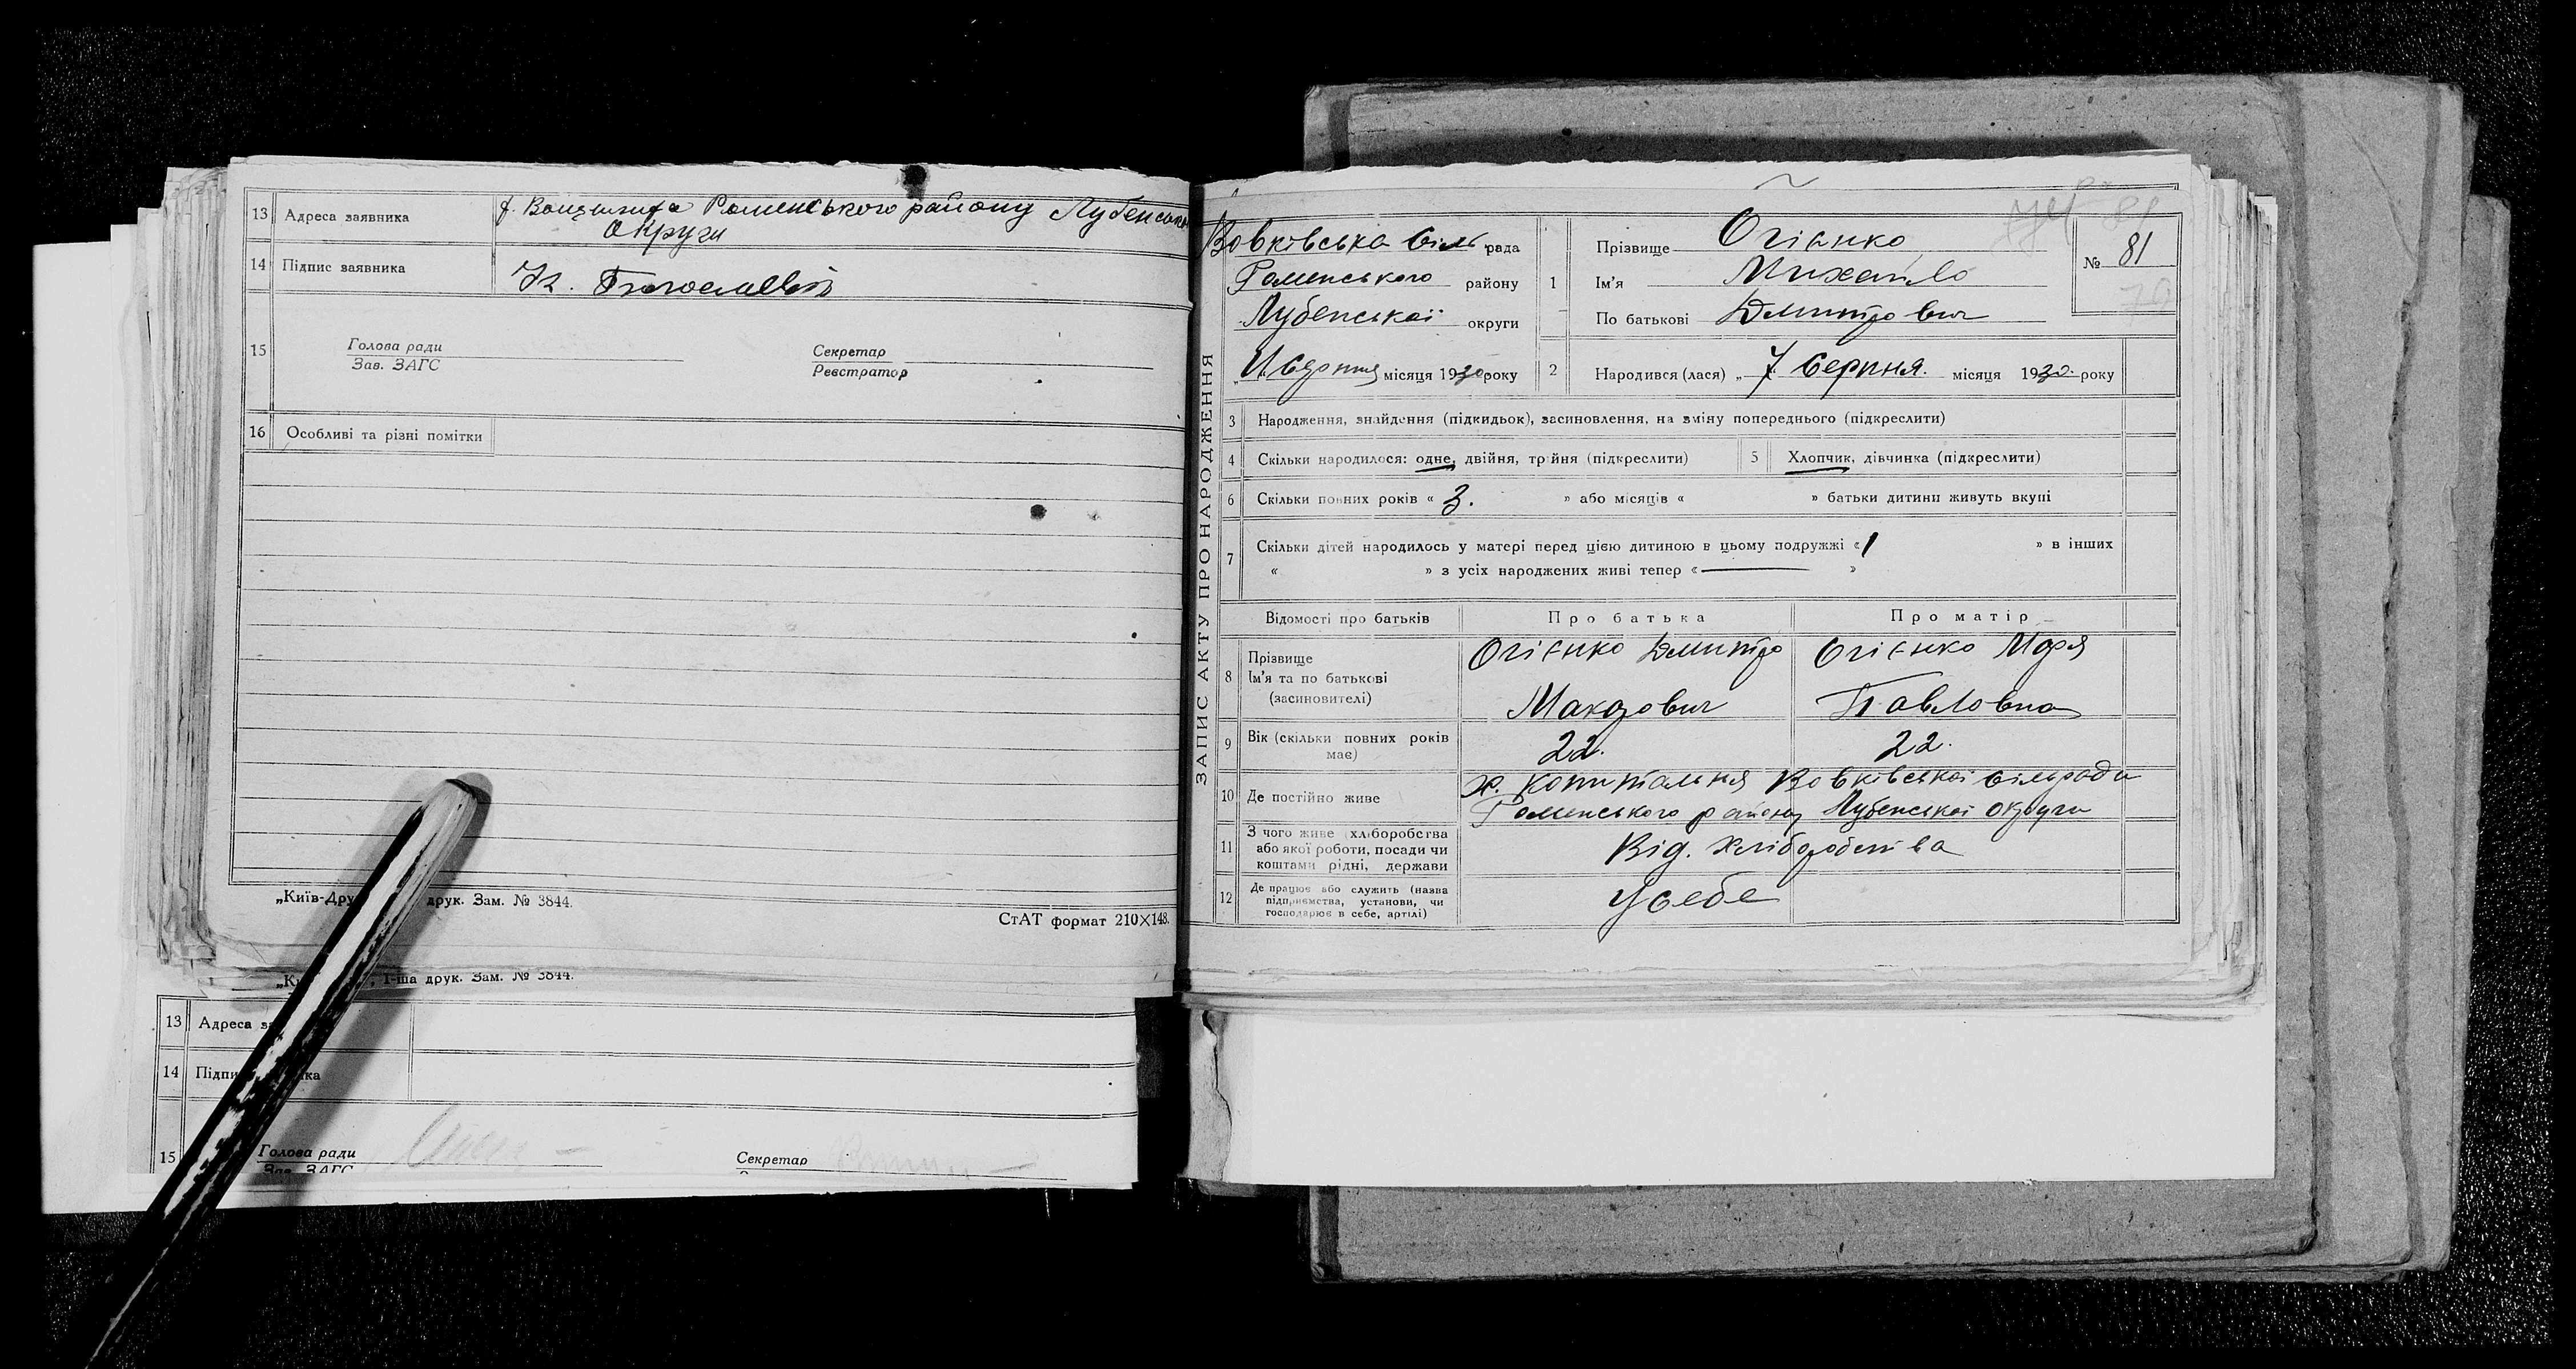 13 Адреса заявника Роменського району Лубенсько
округи
14 Підпис заявника
15 Голова ради Секретар
Зав. ЗАГС Реєстратор
16 Особливі та різні помітки
„Київ-Дру друк. Зам. № 3844.
СтАТ формат 210×148.
1-ша друк. Зам. № 3844.
13 Адреса
14
15 Голова ради Секретар
Зав. ЗАГС
ЗАПИС АКТУ ПРО НАРОДЖЕННЯ
Вовківська сіль рада
Роменського району
Лубенської округи
серпня місяця 1930 року
1 Прізвище Огієнко
Ім'я Михайло
По батькові Дмитрович
№ 81
2 Народився (лася) „7 серпня місяця 1930 року
3 Народження, знайдення (підкидьок), засиновлення, на зміну попереднього (підкреслити)
4 Скільки народилося: одне, двійня, трійня (підкреслити) 5 Хлопчик, дівчинка (підкреслити)
6 Скільки повних років « 3. » або місяців « » батьки дитини живуть вкупі
7 Скільки дітей народилось у матері перед цією дитиною в цьому подружжі « 1 » в інших
« » з усіх народжених живі тепер « — »
Відомості про батьків Про батька Про матір
8 Прізвище Ім'я та по батькові (засиновителі)
Огієнко Дмитро Макарович
Огієнко Марія Павловна
9 Вік (скільки повних років має) 22. 22.
10 Де постійно живе х. Копитальня Вовківської сільради
Роменського району Лубенської округи
11 З чого живе (хліборобства або якої роботи, посади чи коштами рідні, держави
Від. хліборобства
12 Де працює або служить (назва підприємства, установи, чи господарює в себе, артілі)
У себе